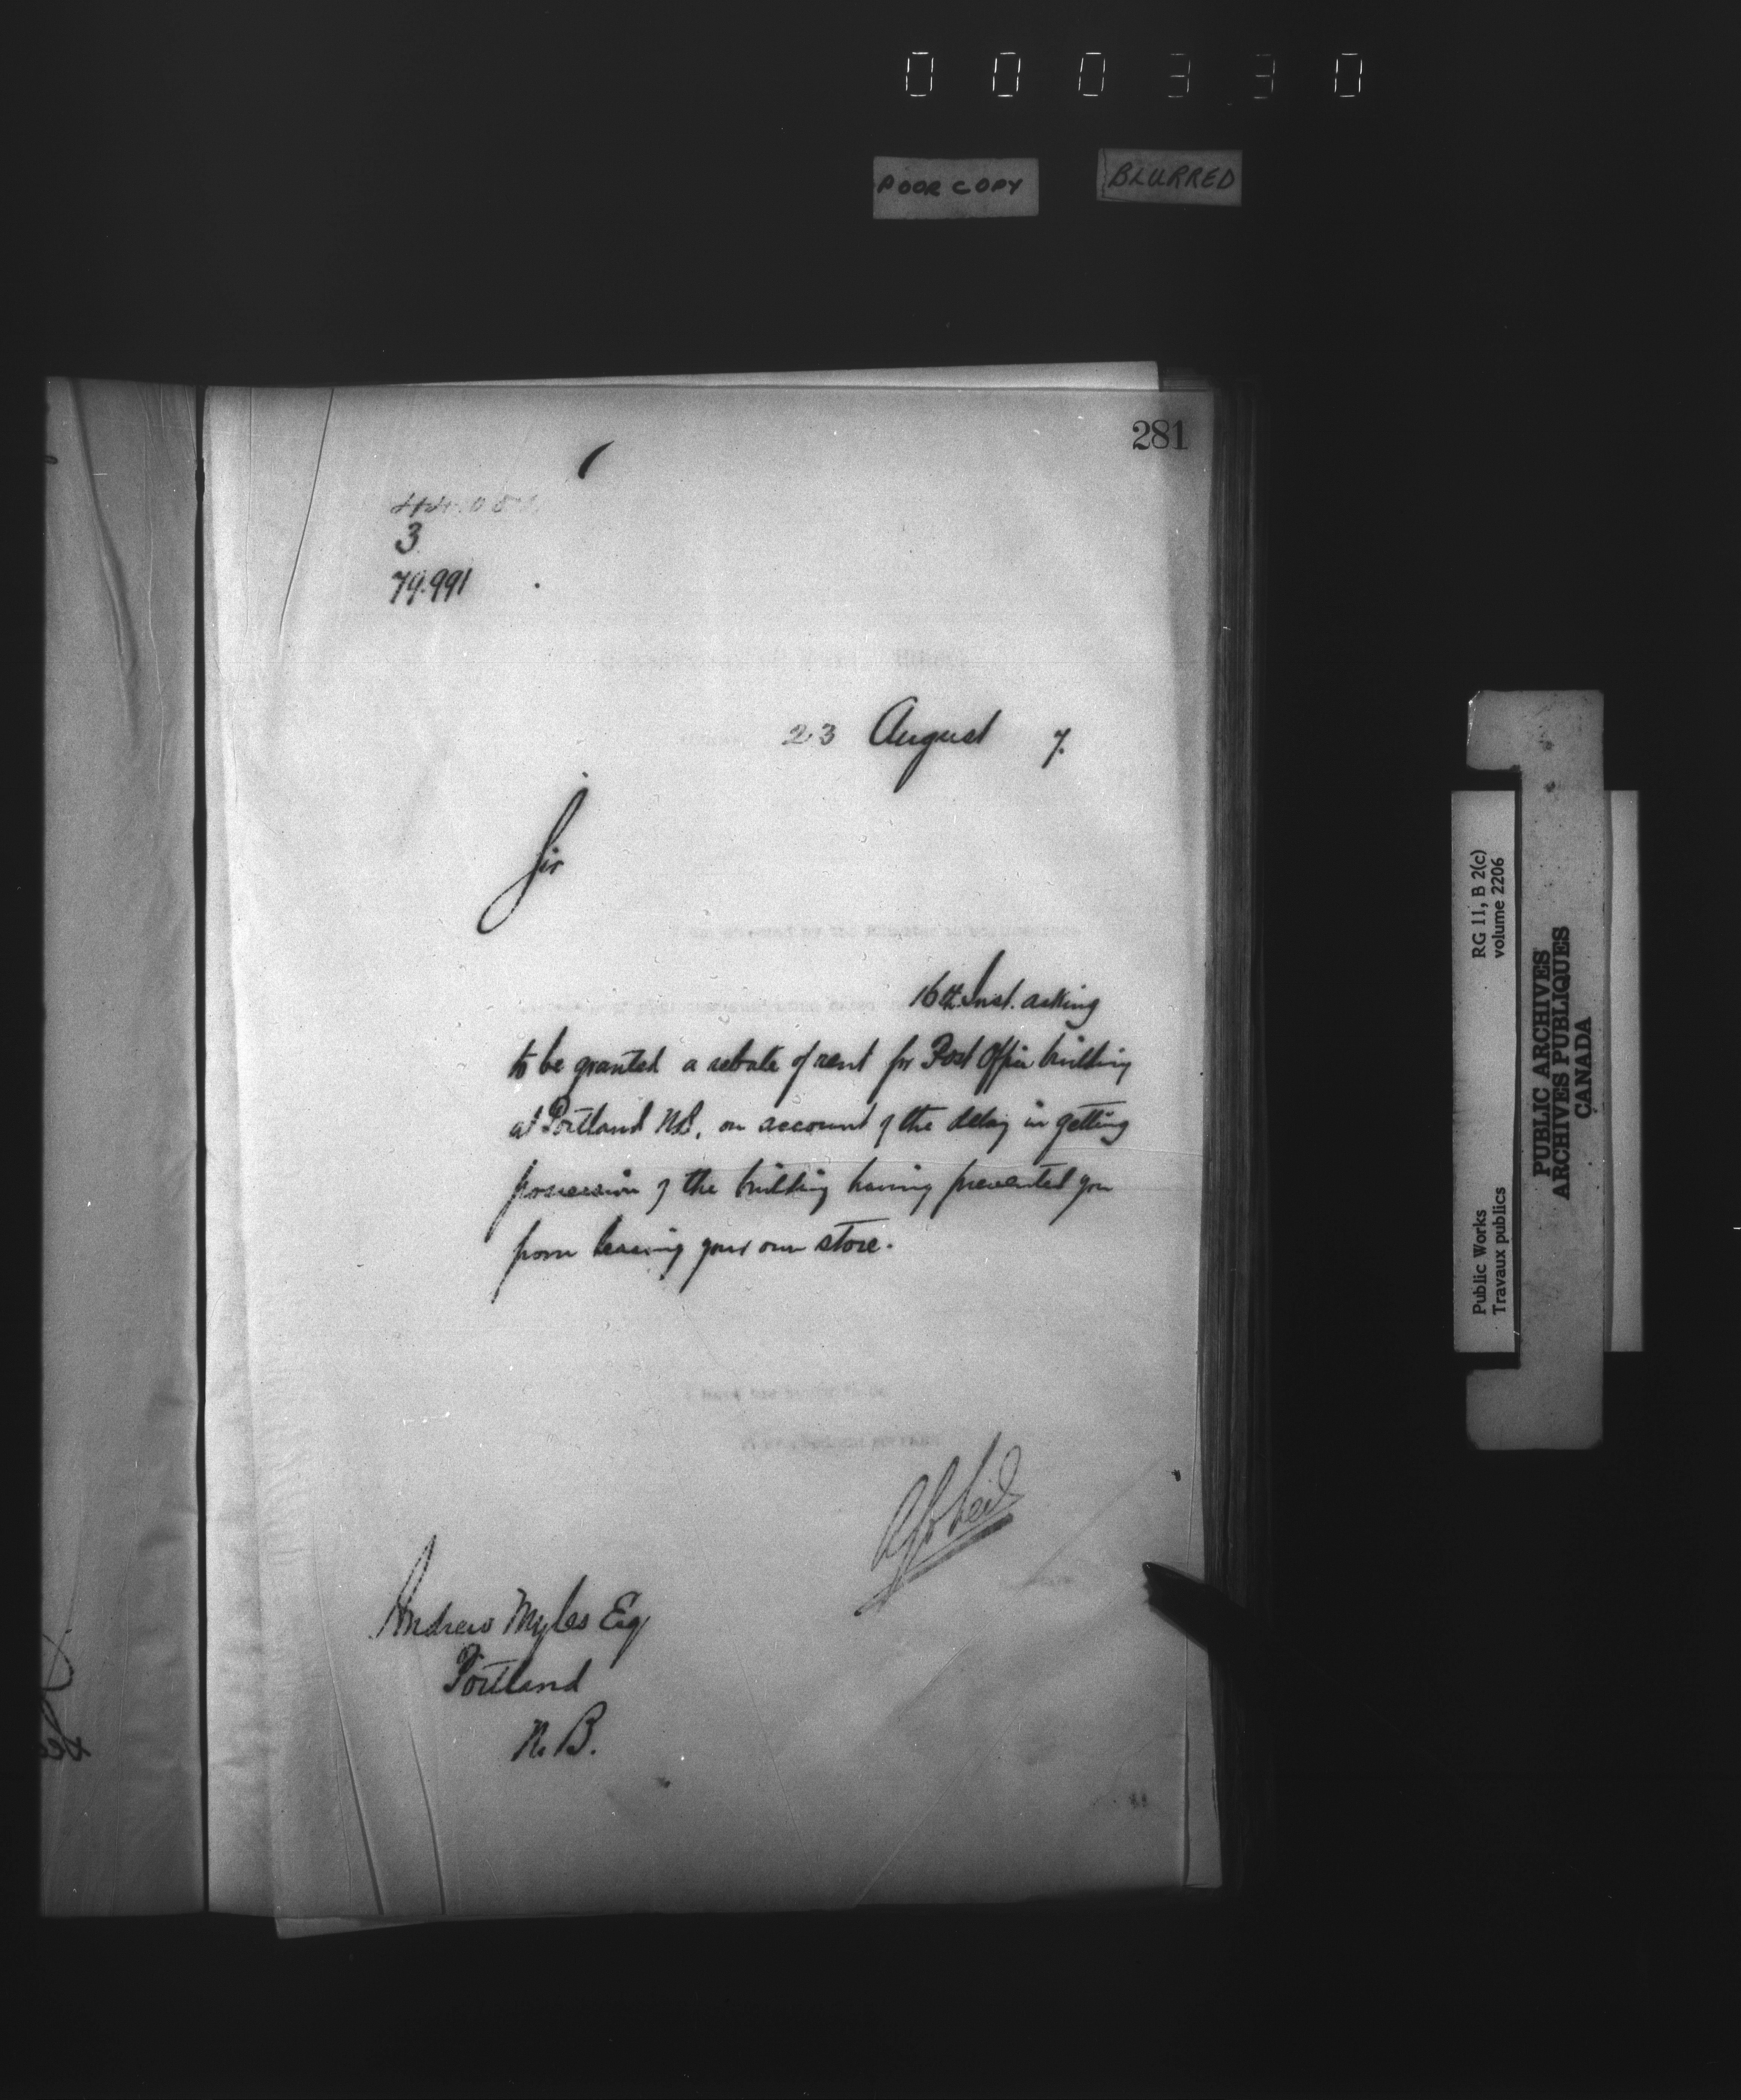 000330
POOR COPY
BLURRED
281
3
79.991
23 August 7.
Sir
16th Inst. asking
to be granted a rebate of rent for Post Office building
at Portland N.B. on account of the delay in getting
possession of the building having prevented you
from leasing your own store.
I have the honor to be
Andrew Myles Esq
Portland
N. B.
Public Works
Travaux publics
RG 11, B 2(c)
volume 2206
PUBLIC ARCHIVES
ARCHIVES PUBLIQUES
CANADA